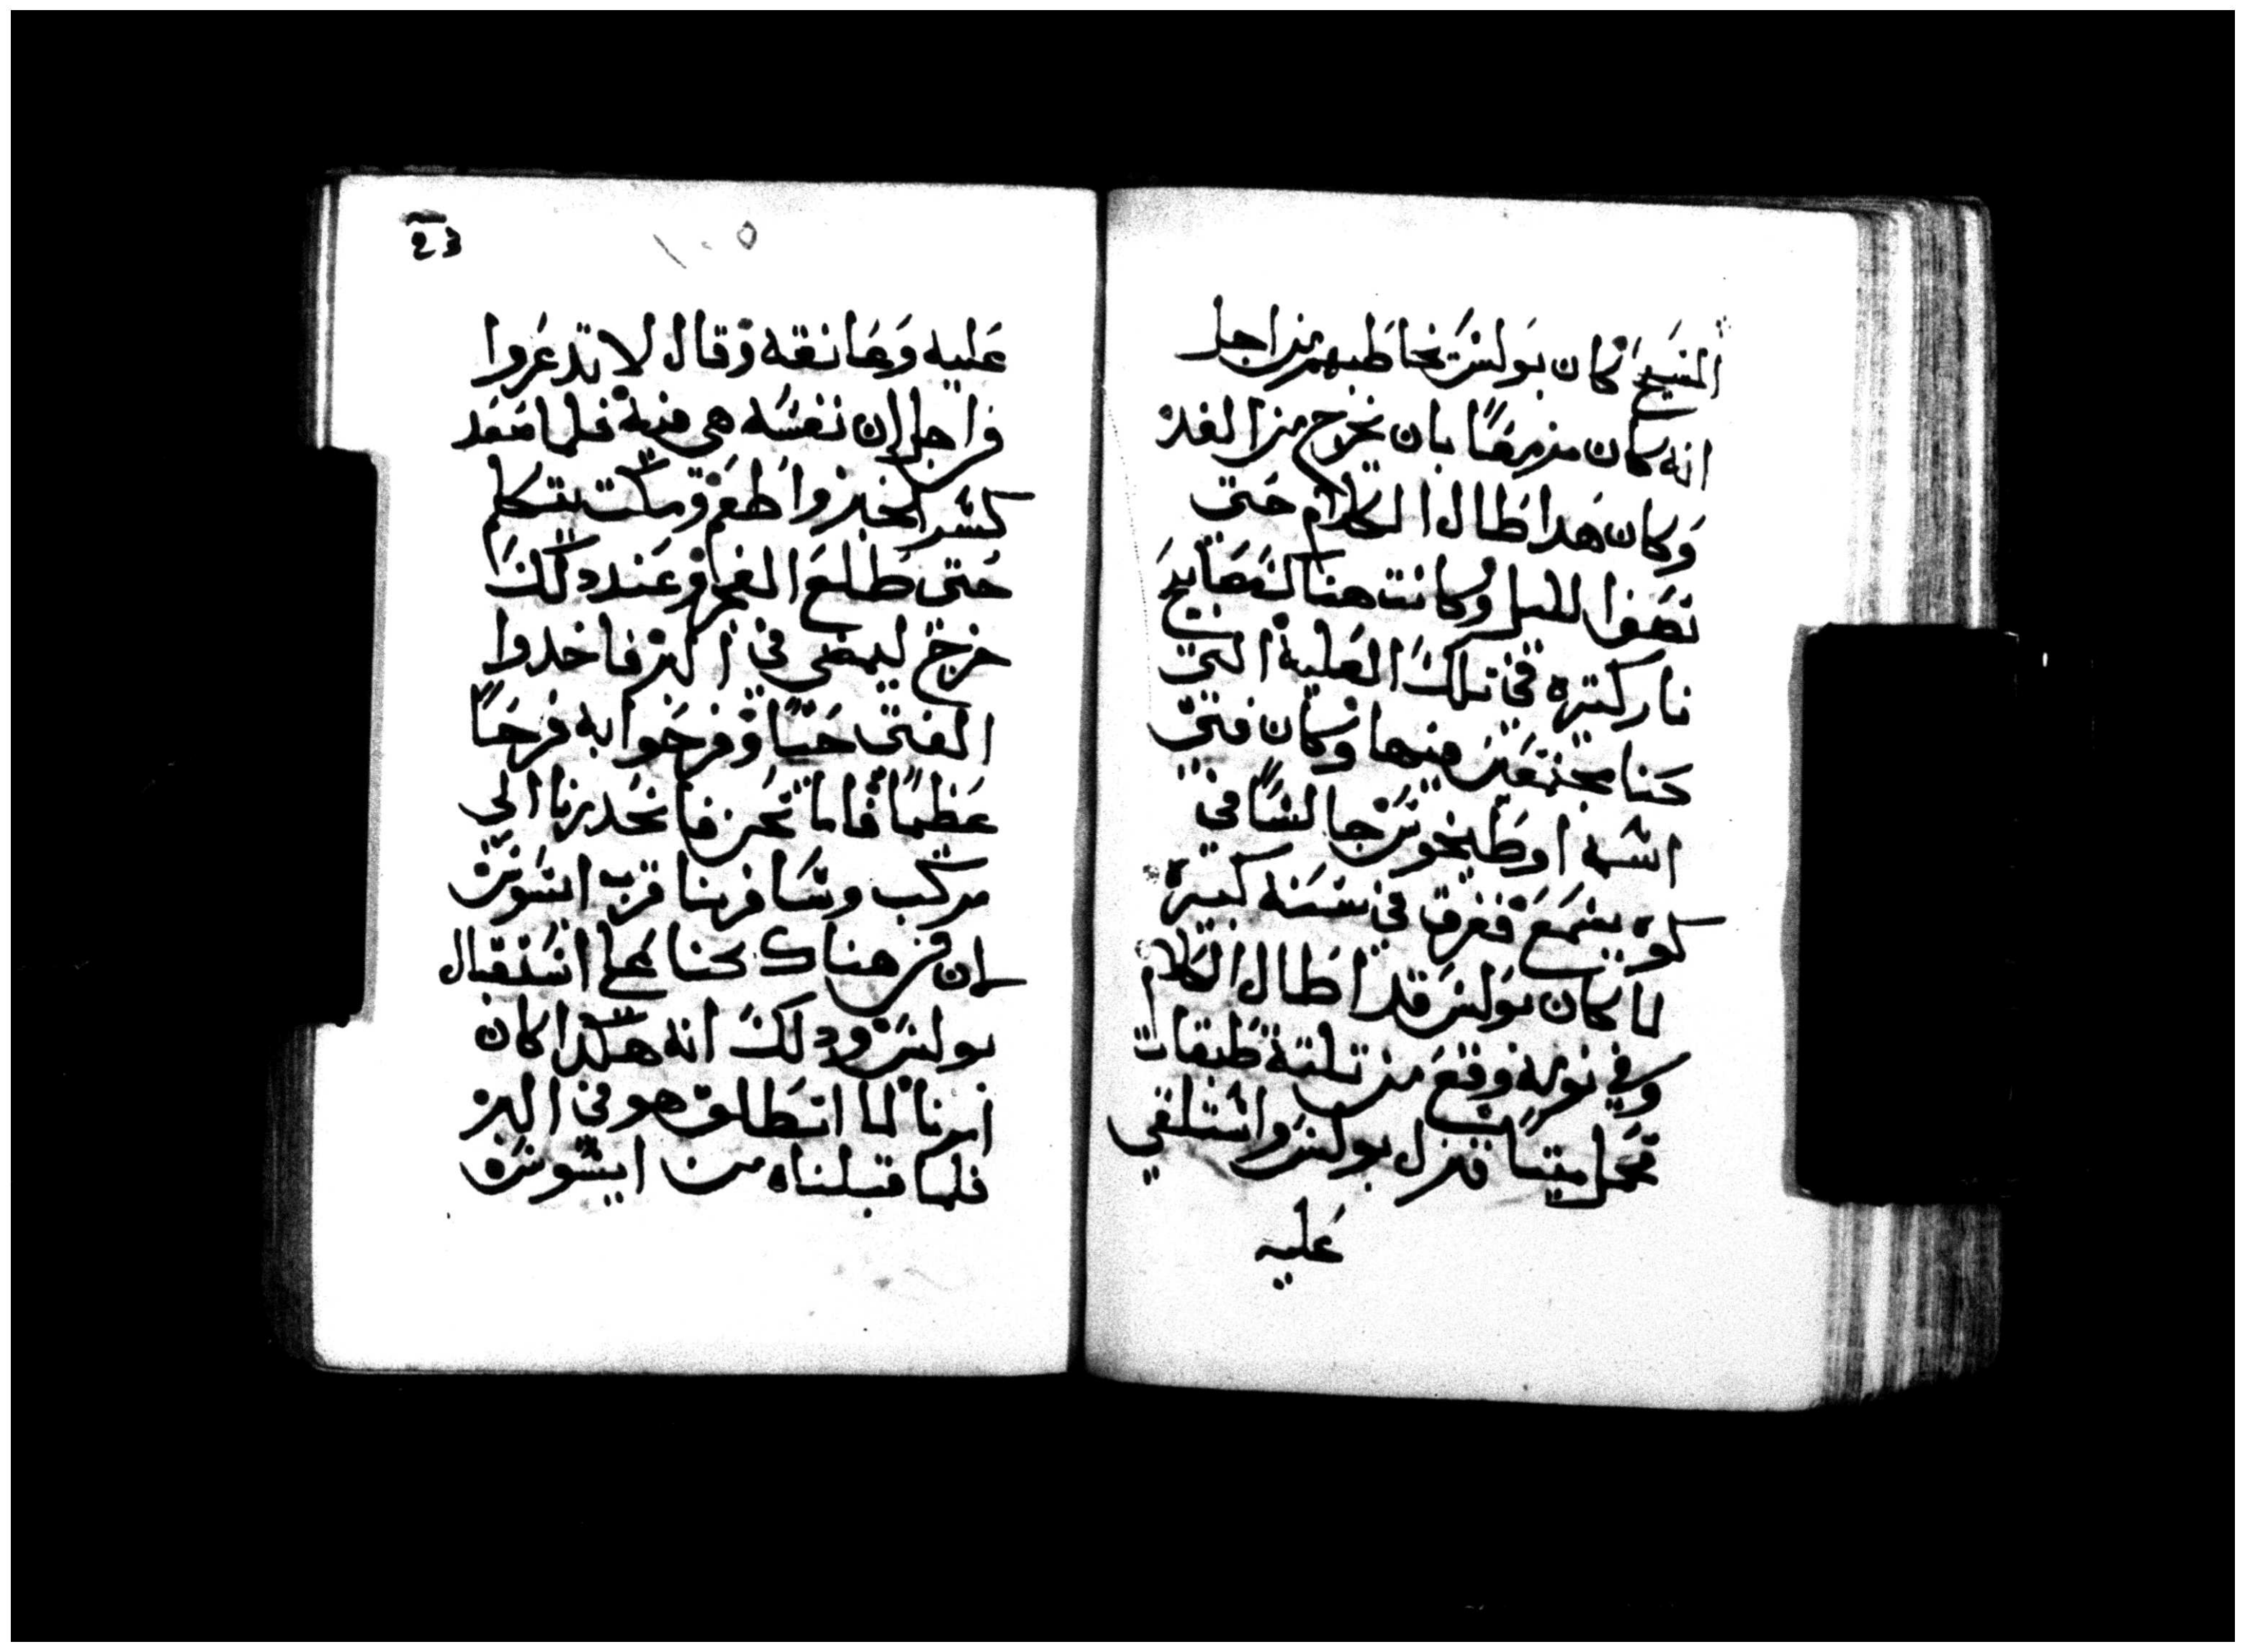 المسيح كان بولس يخاطبهم من اجل
انه كان مزمعًا بان يخرج من الغد
وكان هدا طال الكلام حتى
نصف الليل وكانت هناك مصابيح
نار كتيره في تلك العلية التي
كنا مجتمعين فيها وكان فتى
اسمه اوطيخوس جالسًا في
كوه يسمع فغرق في سنه كبيرة
لما كان بولس قد اطال الكلام
وفي نومه وقع من تلتة طبقات
فحمل ميتًا فنزل بولس واستلقي
عليه
23
١٠٥
عليه وعانقه وقال لا تدعروا
من اجل ان نفسه هي فيه فلما صعد
كسر الخبز واطعم ومكت يتكلم
حتى طلع الفجر وعند دلك
خرج ليمضي في البر فاخدوا
الفتى حيًا وفرحوا به فرحًا
عظيمًا فاما نحن فانحدرنا الي
مركب وسافرنا قرب ايسوس
لان من هناك كنا على استقبال
بولس ودلك انه هكدا كان
امرنا لما انطلق هو في البر
فلما قبلناه من ايسوس